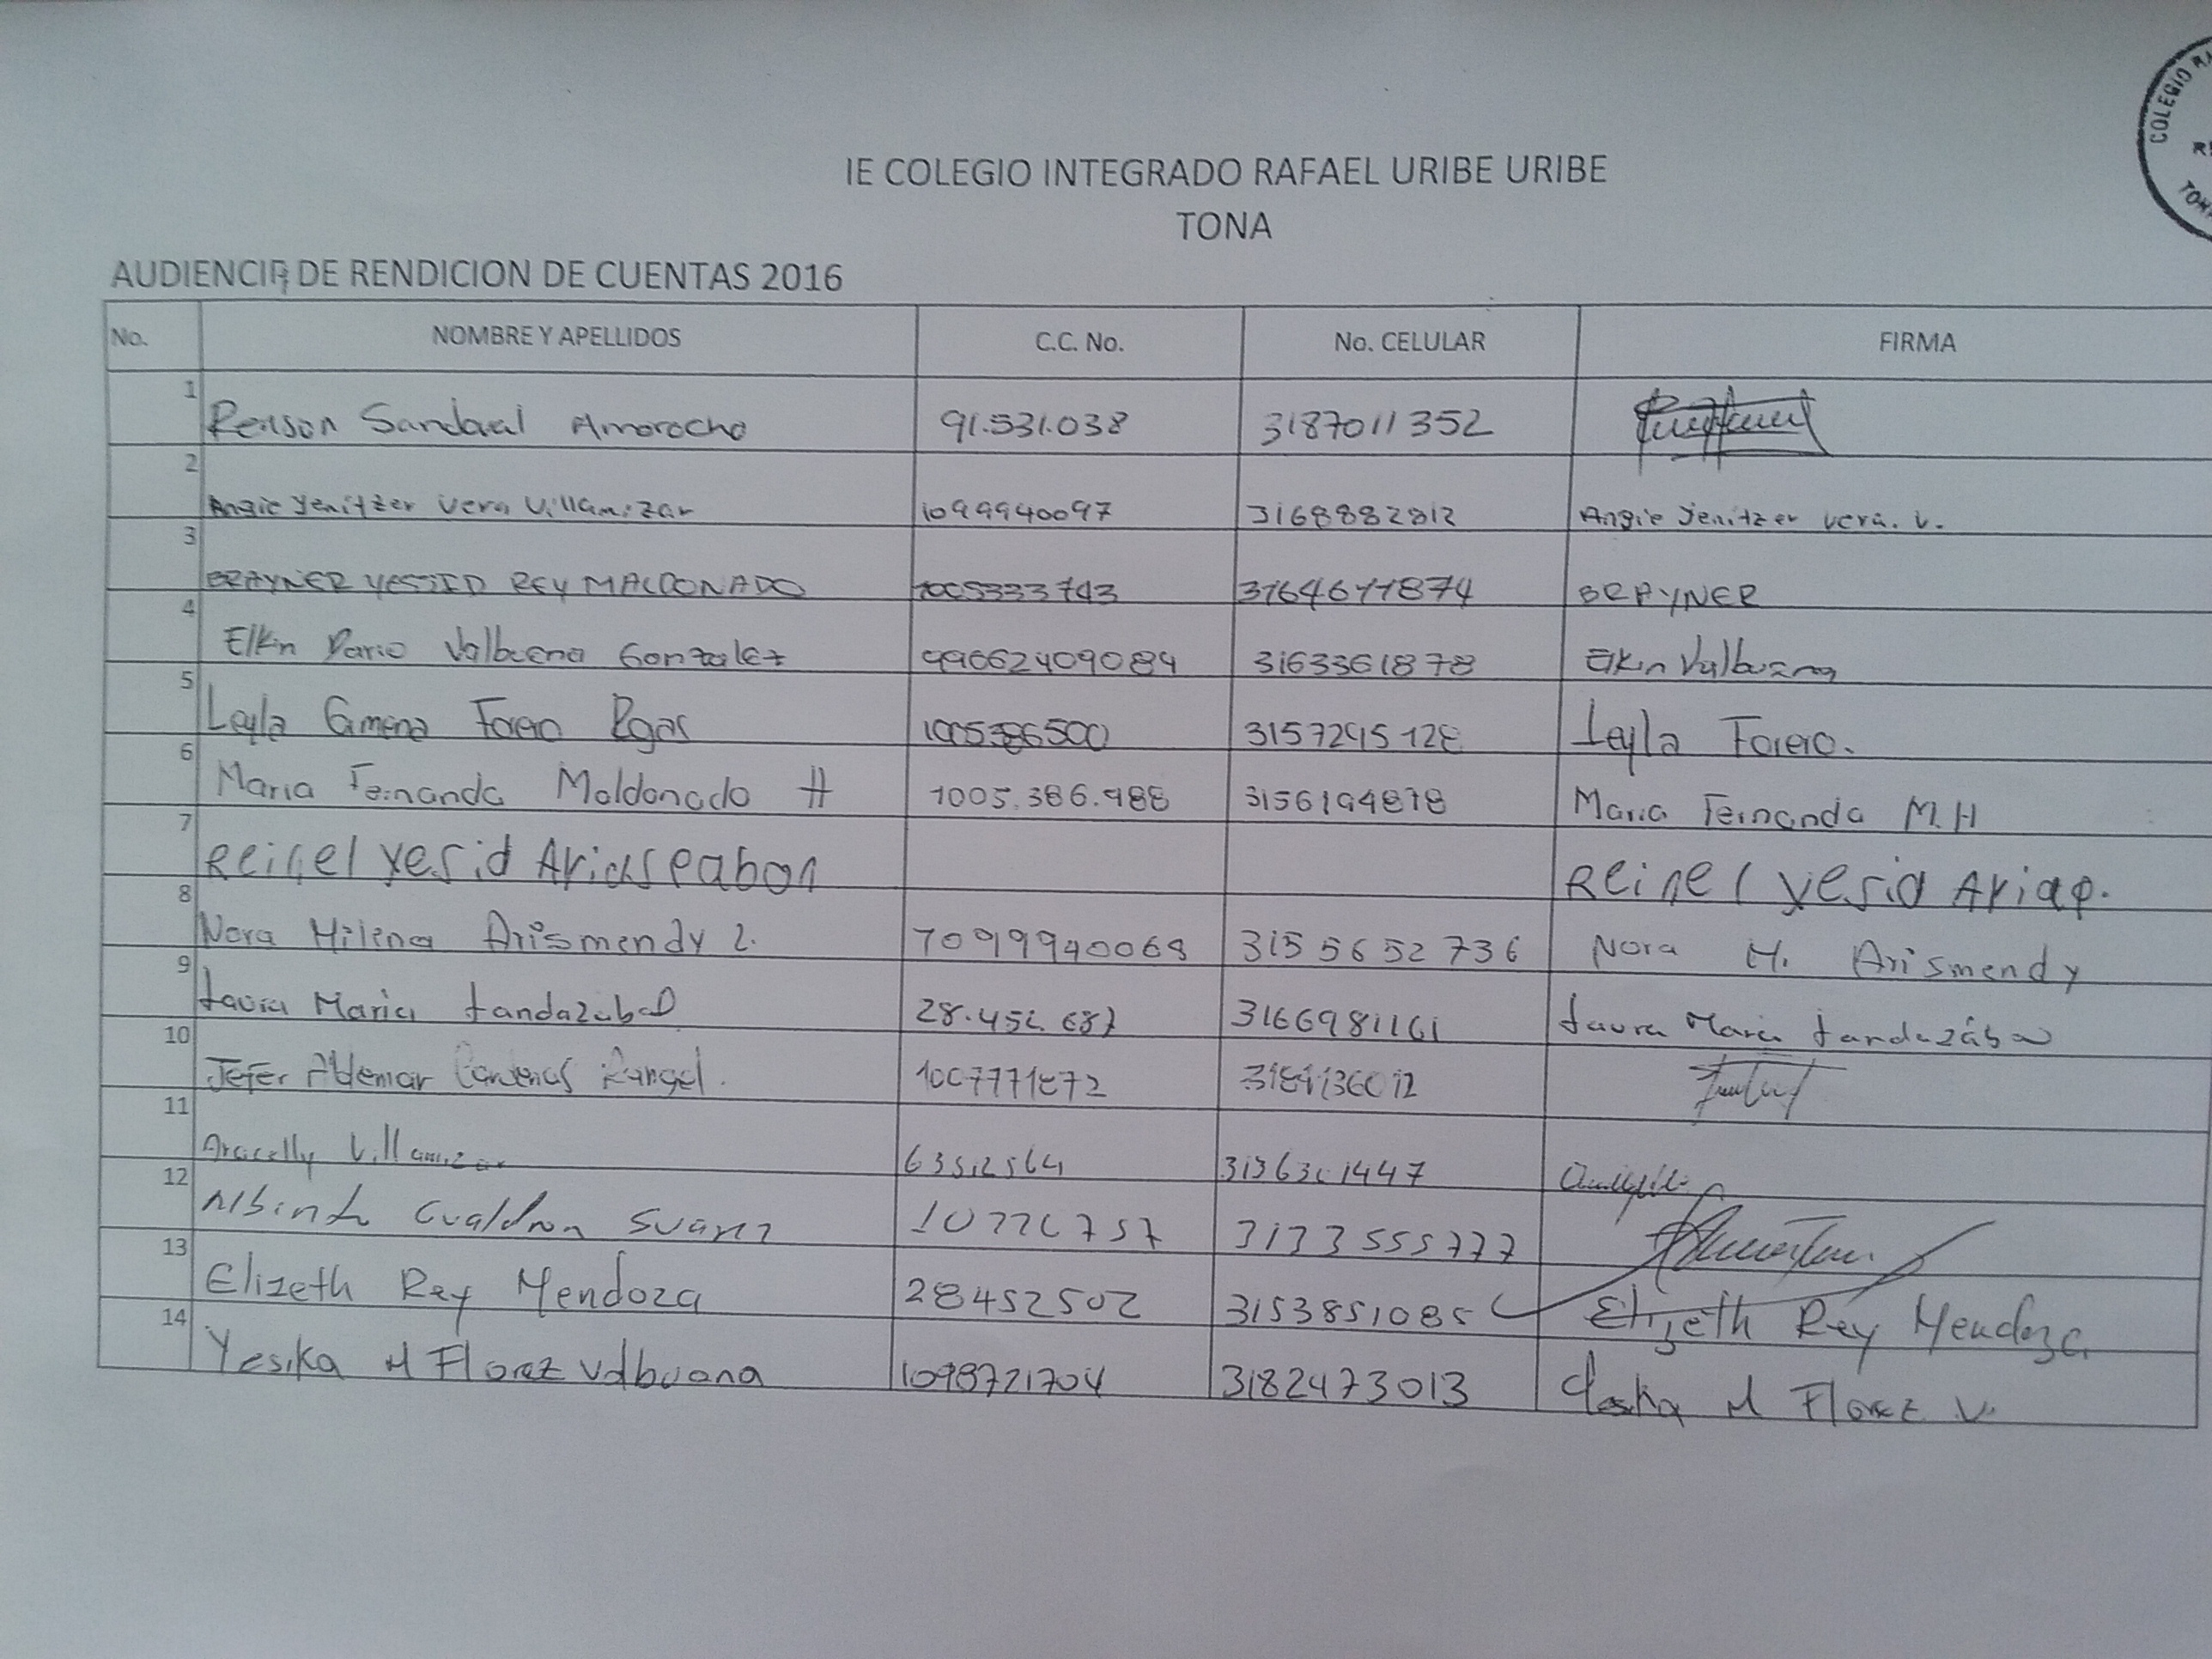 COLEGIO RA
RE
TONA
IE COLEGIO INTEGRADO RAFAEL URIBE URIBE
TONA
AUDIENCIA DE RENDICION DE CUENTAS 2016
No. NOMBRE Y APELLIDOS C.C. No. No. CELULAR FIRMA
1 Renson Sandoval Amorocho 91.531.038 3187011352
2 Angie Yenitzer Vera Villamizar 1099940097 3168882812 Angie Yenitzer Vera. V.
3 BRAYNER YESSID REY MALDONADO 1005333743 3164611874 BRAYNER
4 Elkin Dario Valbuena Gonzalez 99062409084 3163361878 Elkin Valbuena
5 Leyla Gimena Forero 1005386500 3157295128 Leyla Forero.
6 Maria Fernanda Maldonado H 1005.386.988 3156194878 Maria Fernanda M.H
7 Reinel Yesid Arias Pabon Reinel Yesid Aria P.
8 Nora Milena Arismendy L. 1099940068 3155652736 Nora M. Arismendy
9 Laura Maria Landazabal 28.452.687 3166981161 Laura Maria Landazábal
10 Jefer Aldemar Cardenas Rangel. 1007771872
11 Aracelly Villamizar
12 Gualdron Suarez 3133555777
13 Elizeth Rey Mendoza 28452502 3153851085 Elizeth Rey Mendoza
14 Yesika M Florez Valbuena 1098721704 3182473013 Yesika M Florez V.